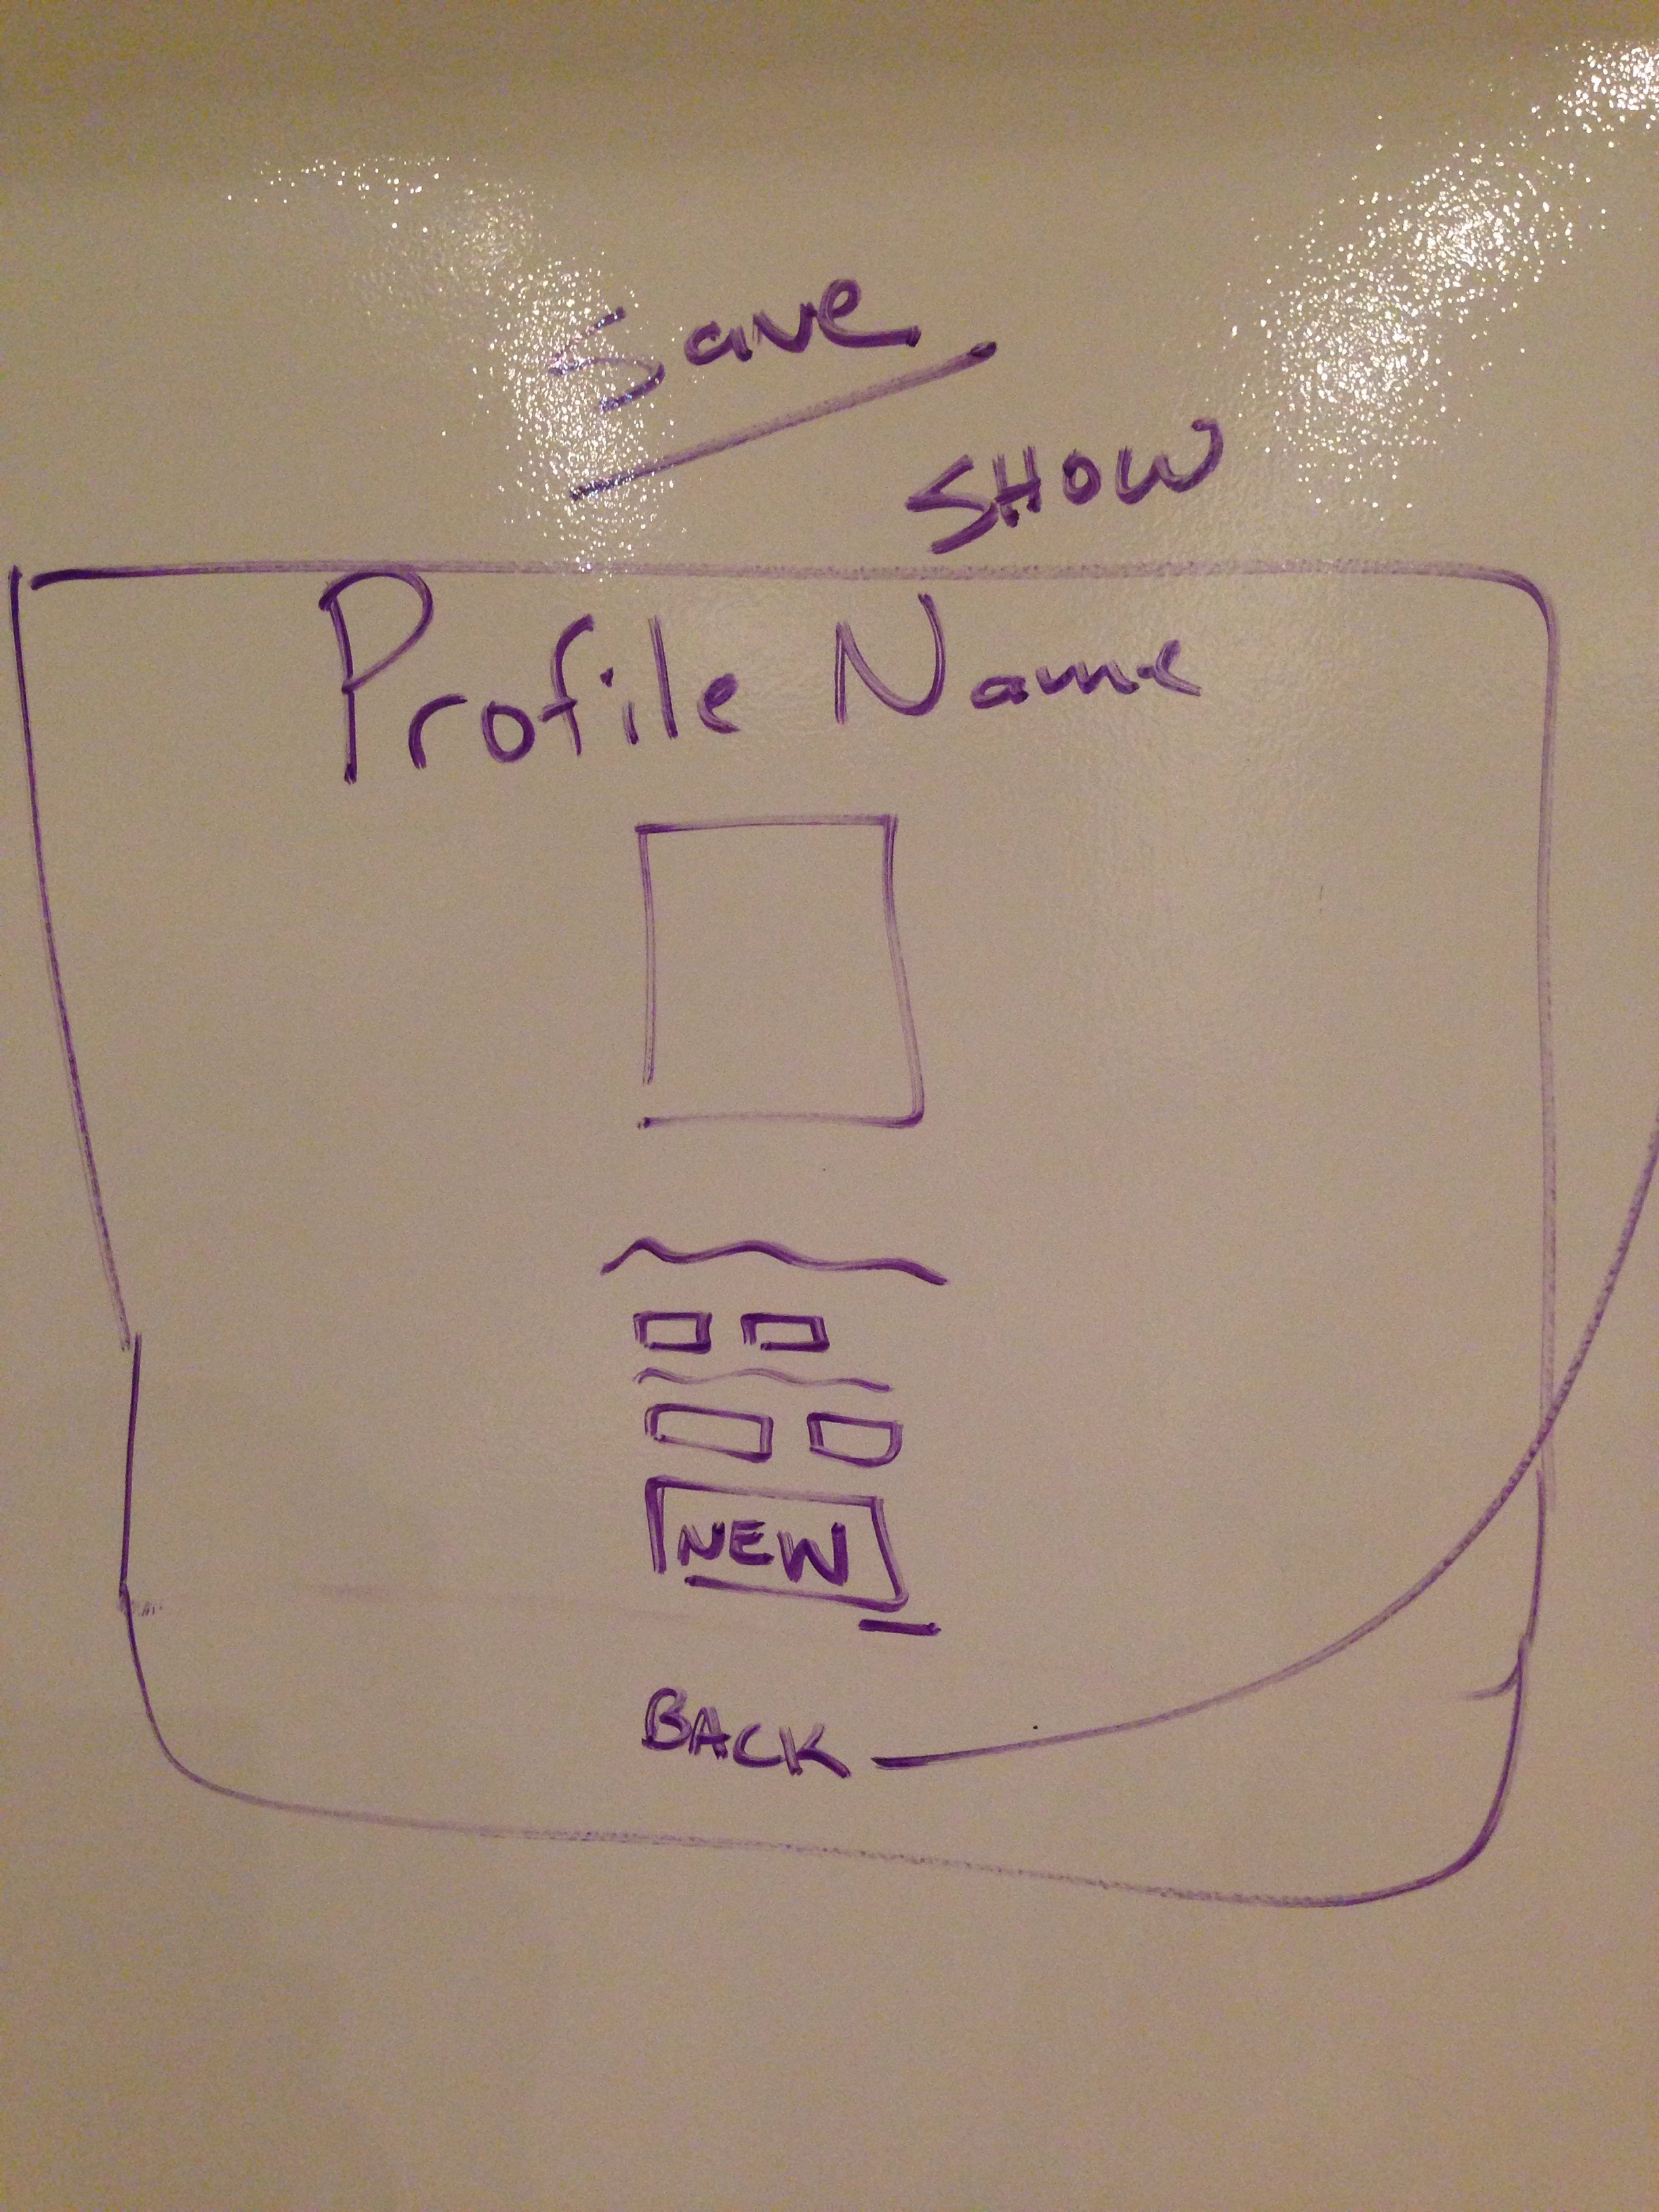 Save
SHOW
Profile Name
NEW
BACK